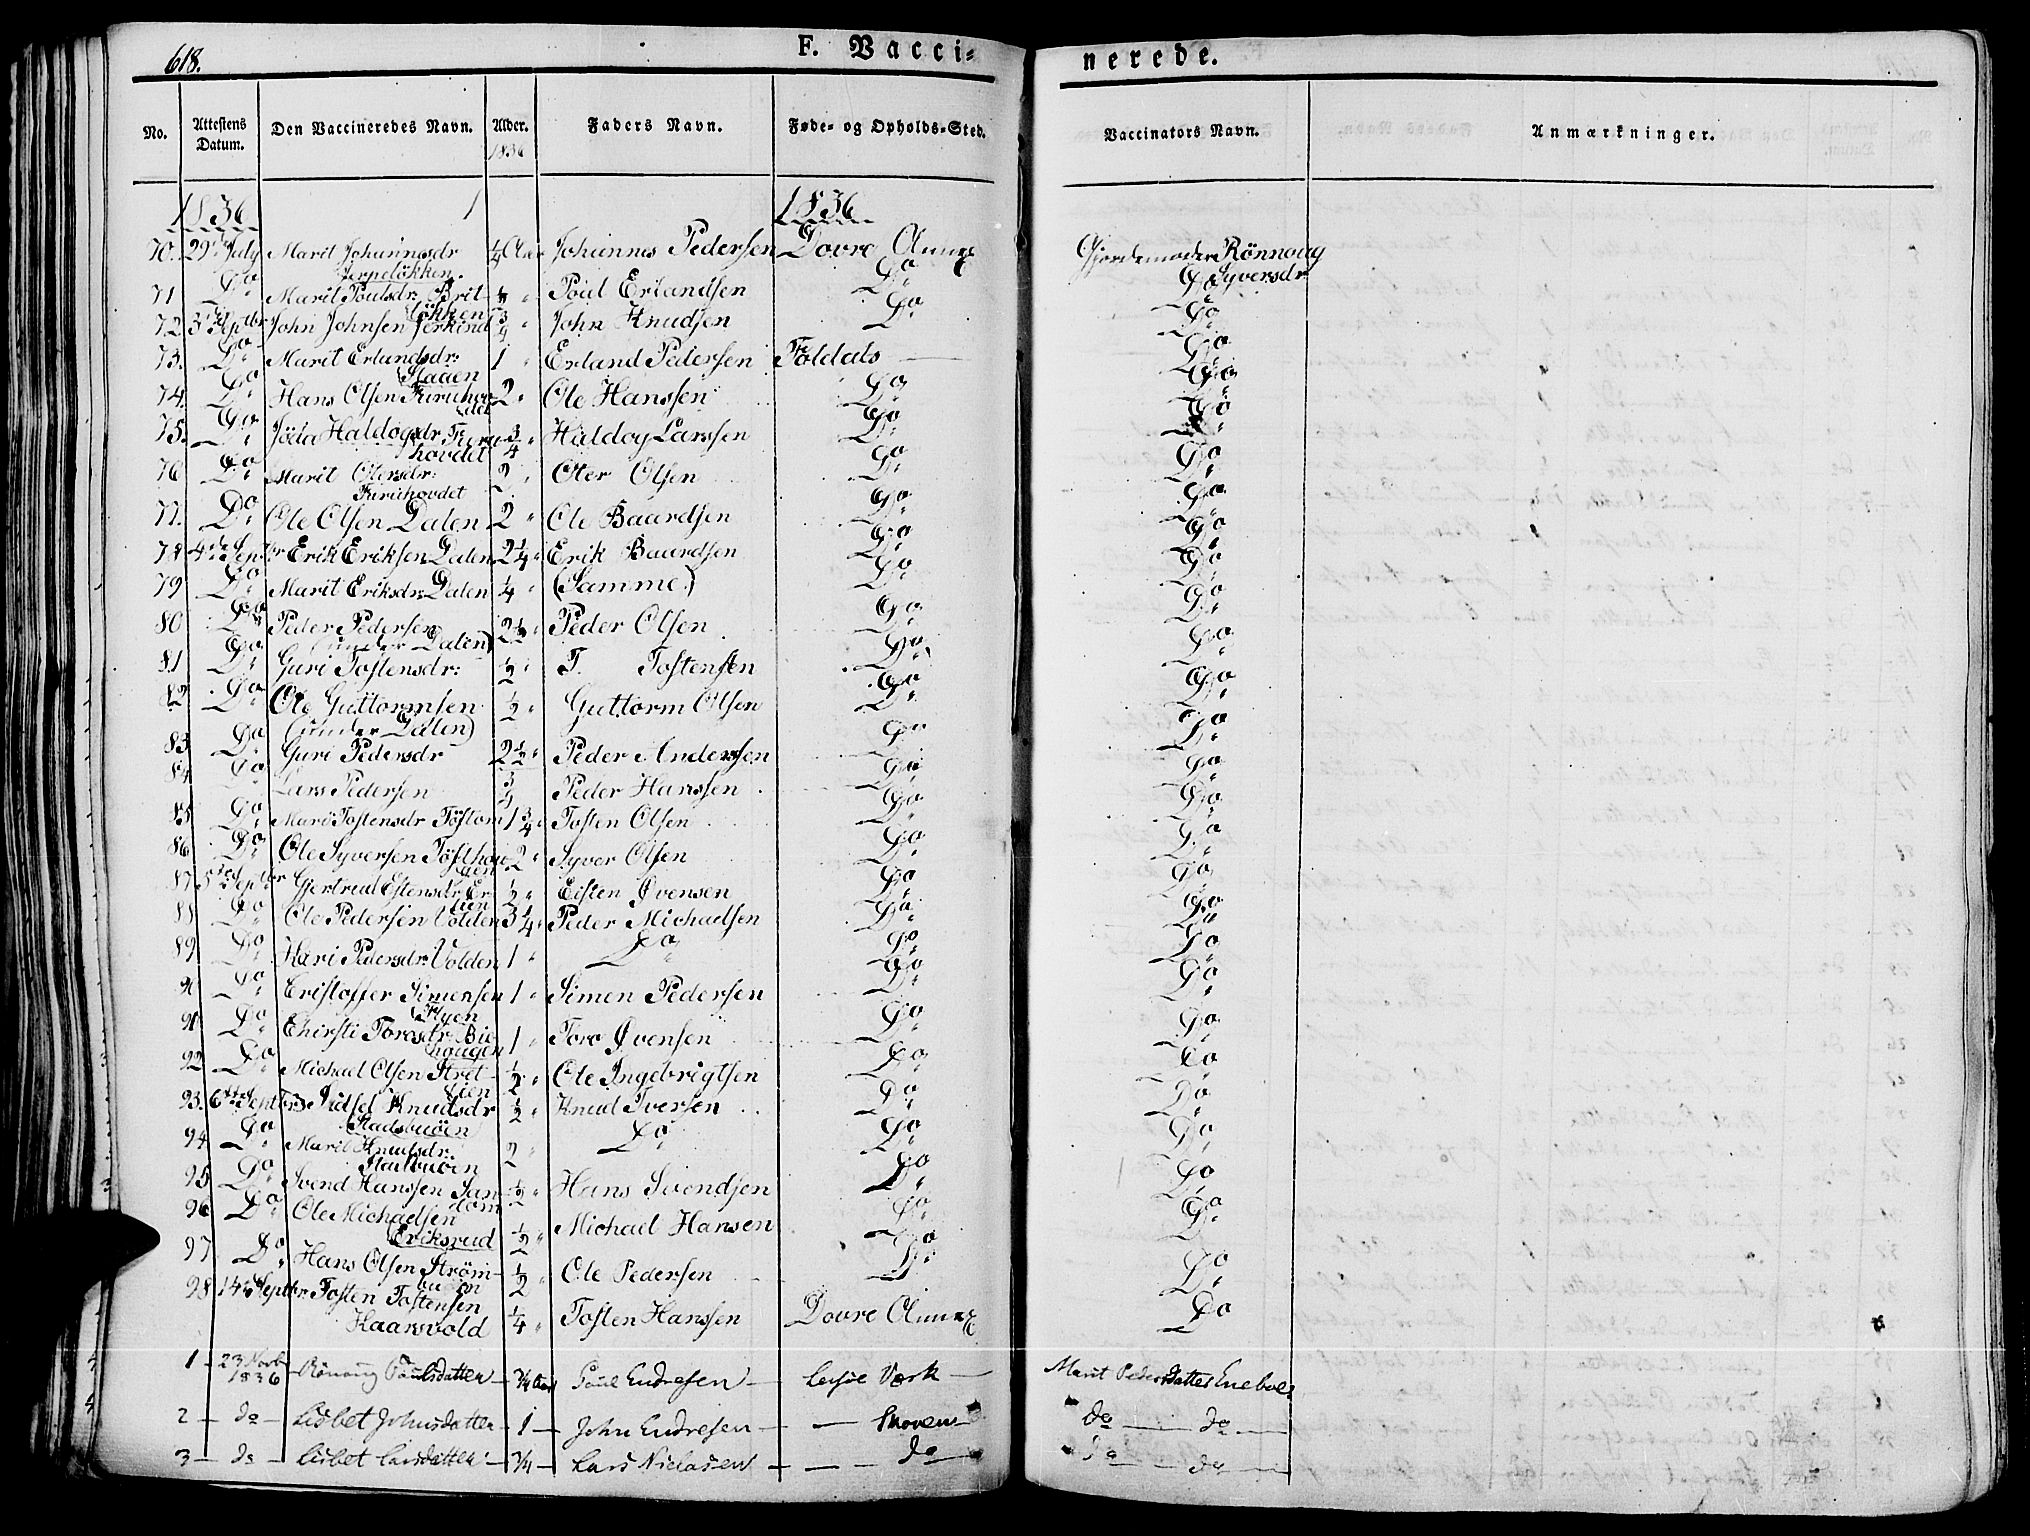 618.
F. Vacci-
nerede.
No. Attestens Datum. Den Vaccineredes Navn. Alder. 1836 Faders Navn. Føde- og Opholds-Sted. Vaccinators Navn. Anmærkninger.
1836 1836
70. 29 July Marit Johannesdr Jerpeløkken. 1/4 Aar Johannes Pedersen Dovre Annex Gjordemoder Rönnoug Syversdr
71 Do Marit Poulsdr. Brit- løkken Poul Erlandsen Do Do
72. 3 Septbr John Johnsen Jerkind John Knudsen Do Do
73. Do Marit Erlandsdr: Haaen 1 " Erland Pedersen Foldals Do
74. Do Hans Olsen Furuhov- det 2 " Ole Hanssen Do Do
75. Do Jöda Haldogsdr Furu- hovdet 3/4 " Haldog Larssen Do Do
76 Do Marit Otersdr: Furuhovdet 2 " Oter Olsen Do Do
77. Do Ole Olsen Dalen 2 " Ole Baardsen Do Do
78 4 Septbr Erik Eriksen Dalen 2 1/4 " Erik Baardsen Do Do
79 Do Marit Eriksdr: Dalen 1/4 " (Samme.) Do Do
80 Do Peder Pedersen (under Dalen) 2 1/2 " Peder Olsen Do Do
81 Do Guri Tostensdr: 1/2 " T. Tostensen Do Do
82 Do Ole Guttormsen (under Dalen) 1/2 " Guttorm Olsen Do Do
83 Do Guri Pedersdr 2 1/2 " Peder Anderssen Do Do
84 Do Lars Pedersen Peder Hanssen Do Do
85 Do Mari Tostensdr Töstom 1 3/4 Tosten Olsen Do Do
86 Do Ole Syversen Töslhou- en 2 " Syver Olsen Do Do
87 5 Septbr Gjertrud Estensdr Er- lien 1/2 " Eisten Øvensen Do Do
88 Do Ole Pedersen Volden 3 1/4 " Peder Michaelsen Do Do
89. Do Kari Pedersdr: Volden 1 " Do Do Do
90 Do Cristoffer Simensen Kroken 1 " Simen Pedersen Do Do
91 Do Chirsti Torosdr: Bie- haugen 1 " Toro Øvensen Do Do
92 Do Michael Olsen Stret- lien 1/2 " Ole Ingebrigtsen Do Do
93. 6 Septbr Sidsel Knudsdr Stadsbuöen 1/2 " Knud Iversen Do Do
94 Do Marit Knudsdr: Stadsbuöen 2 " Do Do Do
95 Do Svend Hanssen San- dom 1/2 " Hans Svendsen Do Do
96 Do Ole Michaelsen Eriksrud 1/2 " Michael Hansen Do Do
97 Do Hans Olsen Ström- buöen 1/2 " Ole Pedersen Do Do
98 14 Septbr. Tosten Tostensen Haarsvold 1/4 " Tosten Hanssen Dovre Annex Do
1 - 23 Novbr 1836 - Rönaug Paulsdatter - 3/4 Aar Paul Endresen - Lesje Værk - Marit Pedersdatter Eneboe
2 - do - Lisbet Johnsdatter - 1 - John Endresen - - Skoven do - do -
3 - do - Lisbet Larsdatter - 3/4 - Lars Nielssen - - do - do - do -